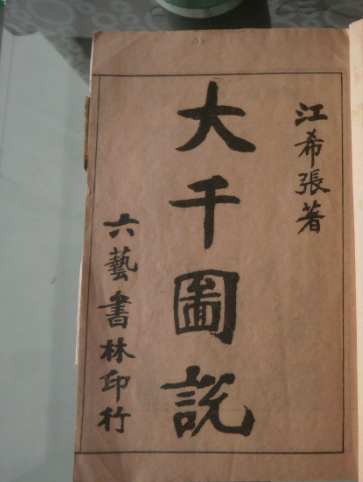 江希張著
大千圖説
六藝書林印行